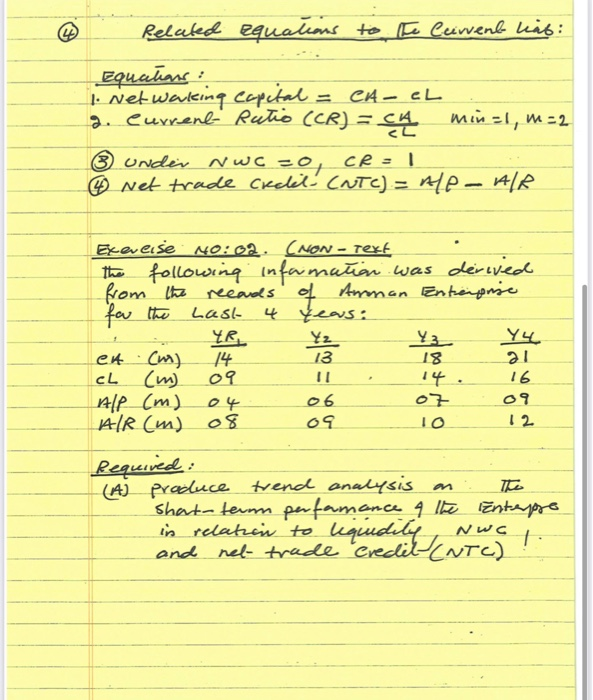 ④ Related Equations to the Current Liab:
Equations:
1. Net working capital = CA - CL
2. Current Ratio (CR) = CA/CL min = 1, m = 2
③ Under NWC = 0, CR = 1
④ Net trade credit (NTC) = A/P - A/R
Exercise NO: 02. (NON-Text
The following information was derived
from the records of Amman Enterprise
for the Last 4 years:
YR1 Y2 Y3 Y4
CA (m) 14 13 18 21
CL (m) 09 11 14 16
A/P (m) 04 06 07 09
A/R (m) 08 09 10 12
Required:
(A) produce trend analysis on the
short-term performance of the Enterpre
in relation to liquidity, NWC
and net trade credit (NTC) !